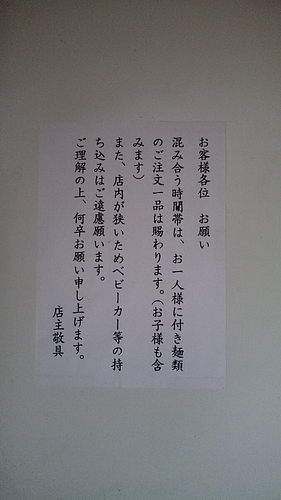 お客様各位　お願い
混み合う時間帯は、お一人様に付き麺類
のご注文一品は賜わります。（お子様も含
みます）
また、店内が狭いためベビーカー等の持
ち込みはご遠慮願います。
ご理解の上、何卒お願い申し上げます。
店主敬具